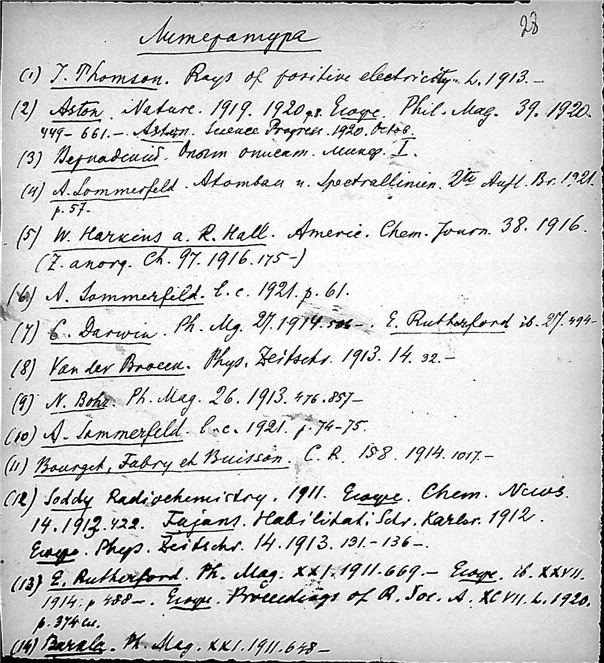 28
Литература
(1) J. Thomson. Rays of positive electricity. L. 1913. –
(2) Aston. Nature. 1919. 1920. Его же. Phil. Mag. 39. 1920.
449– 661. – Aston. Science Progress. 1920. Octob.
(3) Вернадский. Опыт описат. минер. I.
(4) A. Sommerfeld. Atombau u. Spectrallinien. 2te Aufl. Br. 1921.
p. 57.
(5) W. Harkins a. R. Hall. Americ. Chem. Journ. 38. 1916.
(Z. anorg. Ch. 97. 1916. 175–)
(6) A. Sommerfeld. l. c. 1921. p. 61.
(7) C. Darwin. Ph. Mg. 27. 1914. 506 – E. Rutherford ib. 27. 494–
(8) Van der Broeck. Phys. Zeitschr. 1913. 14. 32. –
(9) N. Bohr. Ph. Mag. 26. 1913. 476. 857–
(10) A. Sommerfeld. l. c. 1921. p. 74–75.
(11) Bourget, Fabry et Buisson. C. R. 158. 1914. 1017. –
(12) Soddy Radiochemistry. 1911. Его же. Chem. News.
14. 1912. 422. Fajans. Habilitat. Schr. Karlsr. 1912.
Его же. Phys. Zeitschr. 14. 1913. 131–136–.
(13) E. Rutherford. Ph. Mag. XXI. 1911. 669. – Его же. ib. XXVII.
1914. p. 488 –. Его же. Proceedings of R. Soc. A. XCVII. L. 1920.
p. 374
(14) Barkla. Ph. Mag. XXI. 1911. 648 –